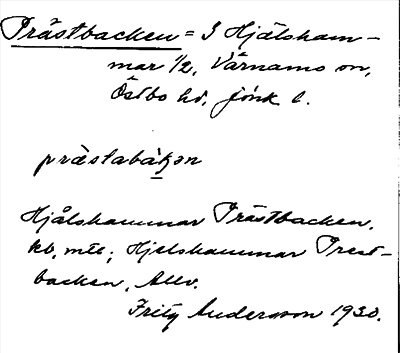 Prästbacken = 3 Hjälsham-
mar 1/2, Värnamo sn,
Östbo hd, Jönk l.
præstabàkən
Hjälshammar Prästbacken,
kb, mtl; Hjelshammar Prest-
backen, Allv.
Fritz Andersson 1930.